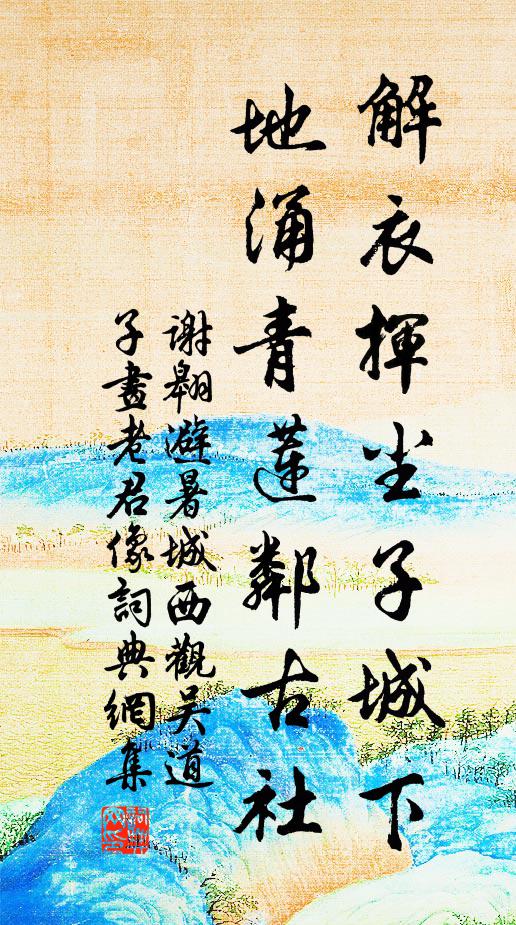 解衣揮坐子城下
地涌青蓮鄰古社
謝翱避暑城西觀吴道
子畫老君像詞典網集